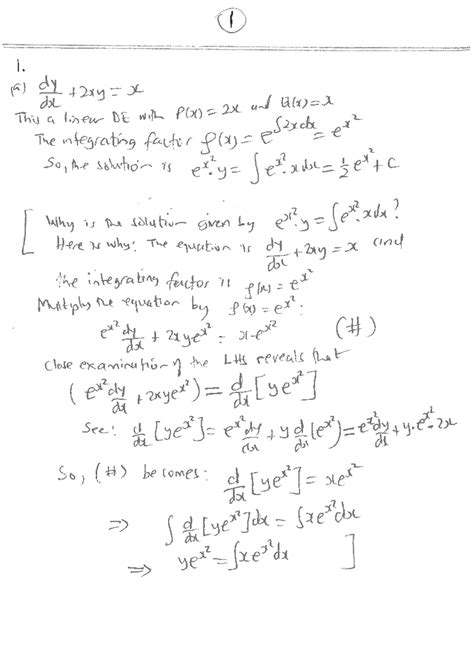 1
1.
(a) dy/dx + 2xy = x
This a linear DE with P(x) = 2x and Q(x) = x
The integrating factor ρ(x) = e^∫2xdx = e^x²
So, the solution is e^x².y = ∫e^x².xdx = 1/2 e^x² + C
[ Why is the solution given by e^x².y = ∫e^x².xdx?
Here is why: The equation is dy/dx + 2xy = x and
the integrating factor is ρ(x) = e^x²
Multiply the equation by ρ(x) = e^x²:
e^x² dy/dx + 2xye^x² = x·e^x² (#)
Close examination of the LHS reveals that
(e^x² dy/dx + 2xye^x²) = d/dx [ye^x²]
See: d/dx [ye^x²] = e^x² dy/dx + y d/dx (e^x²) = e^x² dy/dx + y.e^x².2x
So, (#) becomes: d/dx [ye^x²] = xe^x²
⇒ ∫ d/dx [ye^x²]dx = ∫xe^x²dx
⇒ ye^x² = ∫xe^x²dx ]